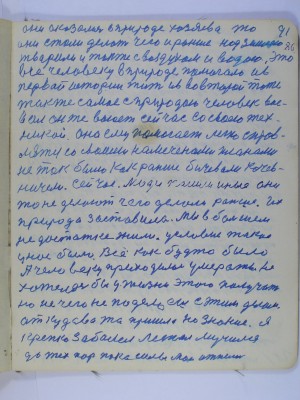 они сказали в природе хозяева то 91
они стали делать чего и раньше над землею 86
творили и также с воздухом и водою, Это
всё человеку в природе помогало и в
первой истории жить и во второй тоже
также самое с природою человек вое-
вал он же воюет сейчас со своею тех-
никой она ему помогает
со своими намеченными планами
не так было как раньше бичевали Кочев-
ничем. Сейчас люди к жизни они
то не делают чего делали раньше. Их
природа заставила. Мы в большем
недостатке жили, условие такое
у нас было, Всё как будто было
А человеку приходилось умерать, не
хотелось бы у жизни этого получать
но не чего не поделаешь с этим делом
откудова та пришло не знание. Я
крепко заболел лежал мучился
до тех пор пока силы мои отжили